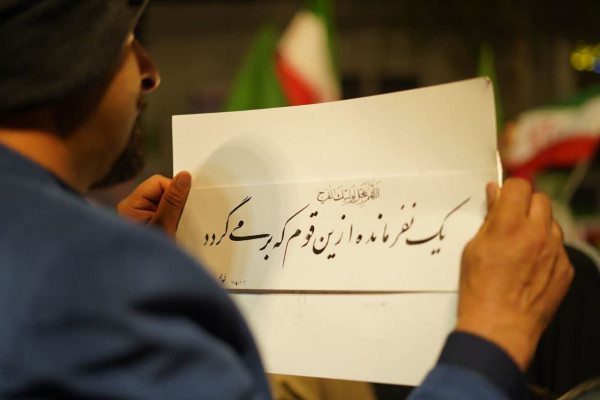 اللهم عجل لولیک الفرج
یک نفر مانده ازین قوم که برمی‌گردد